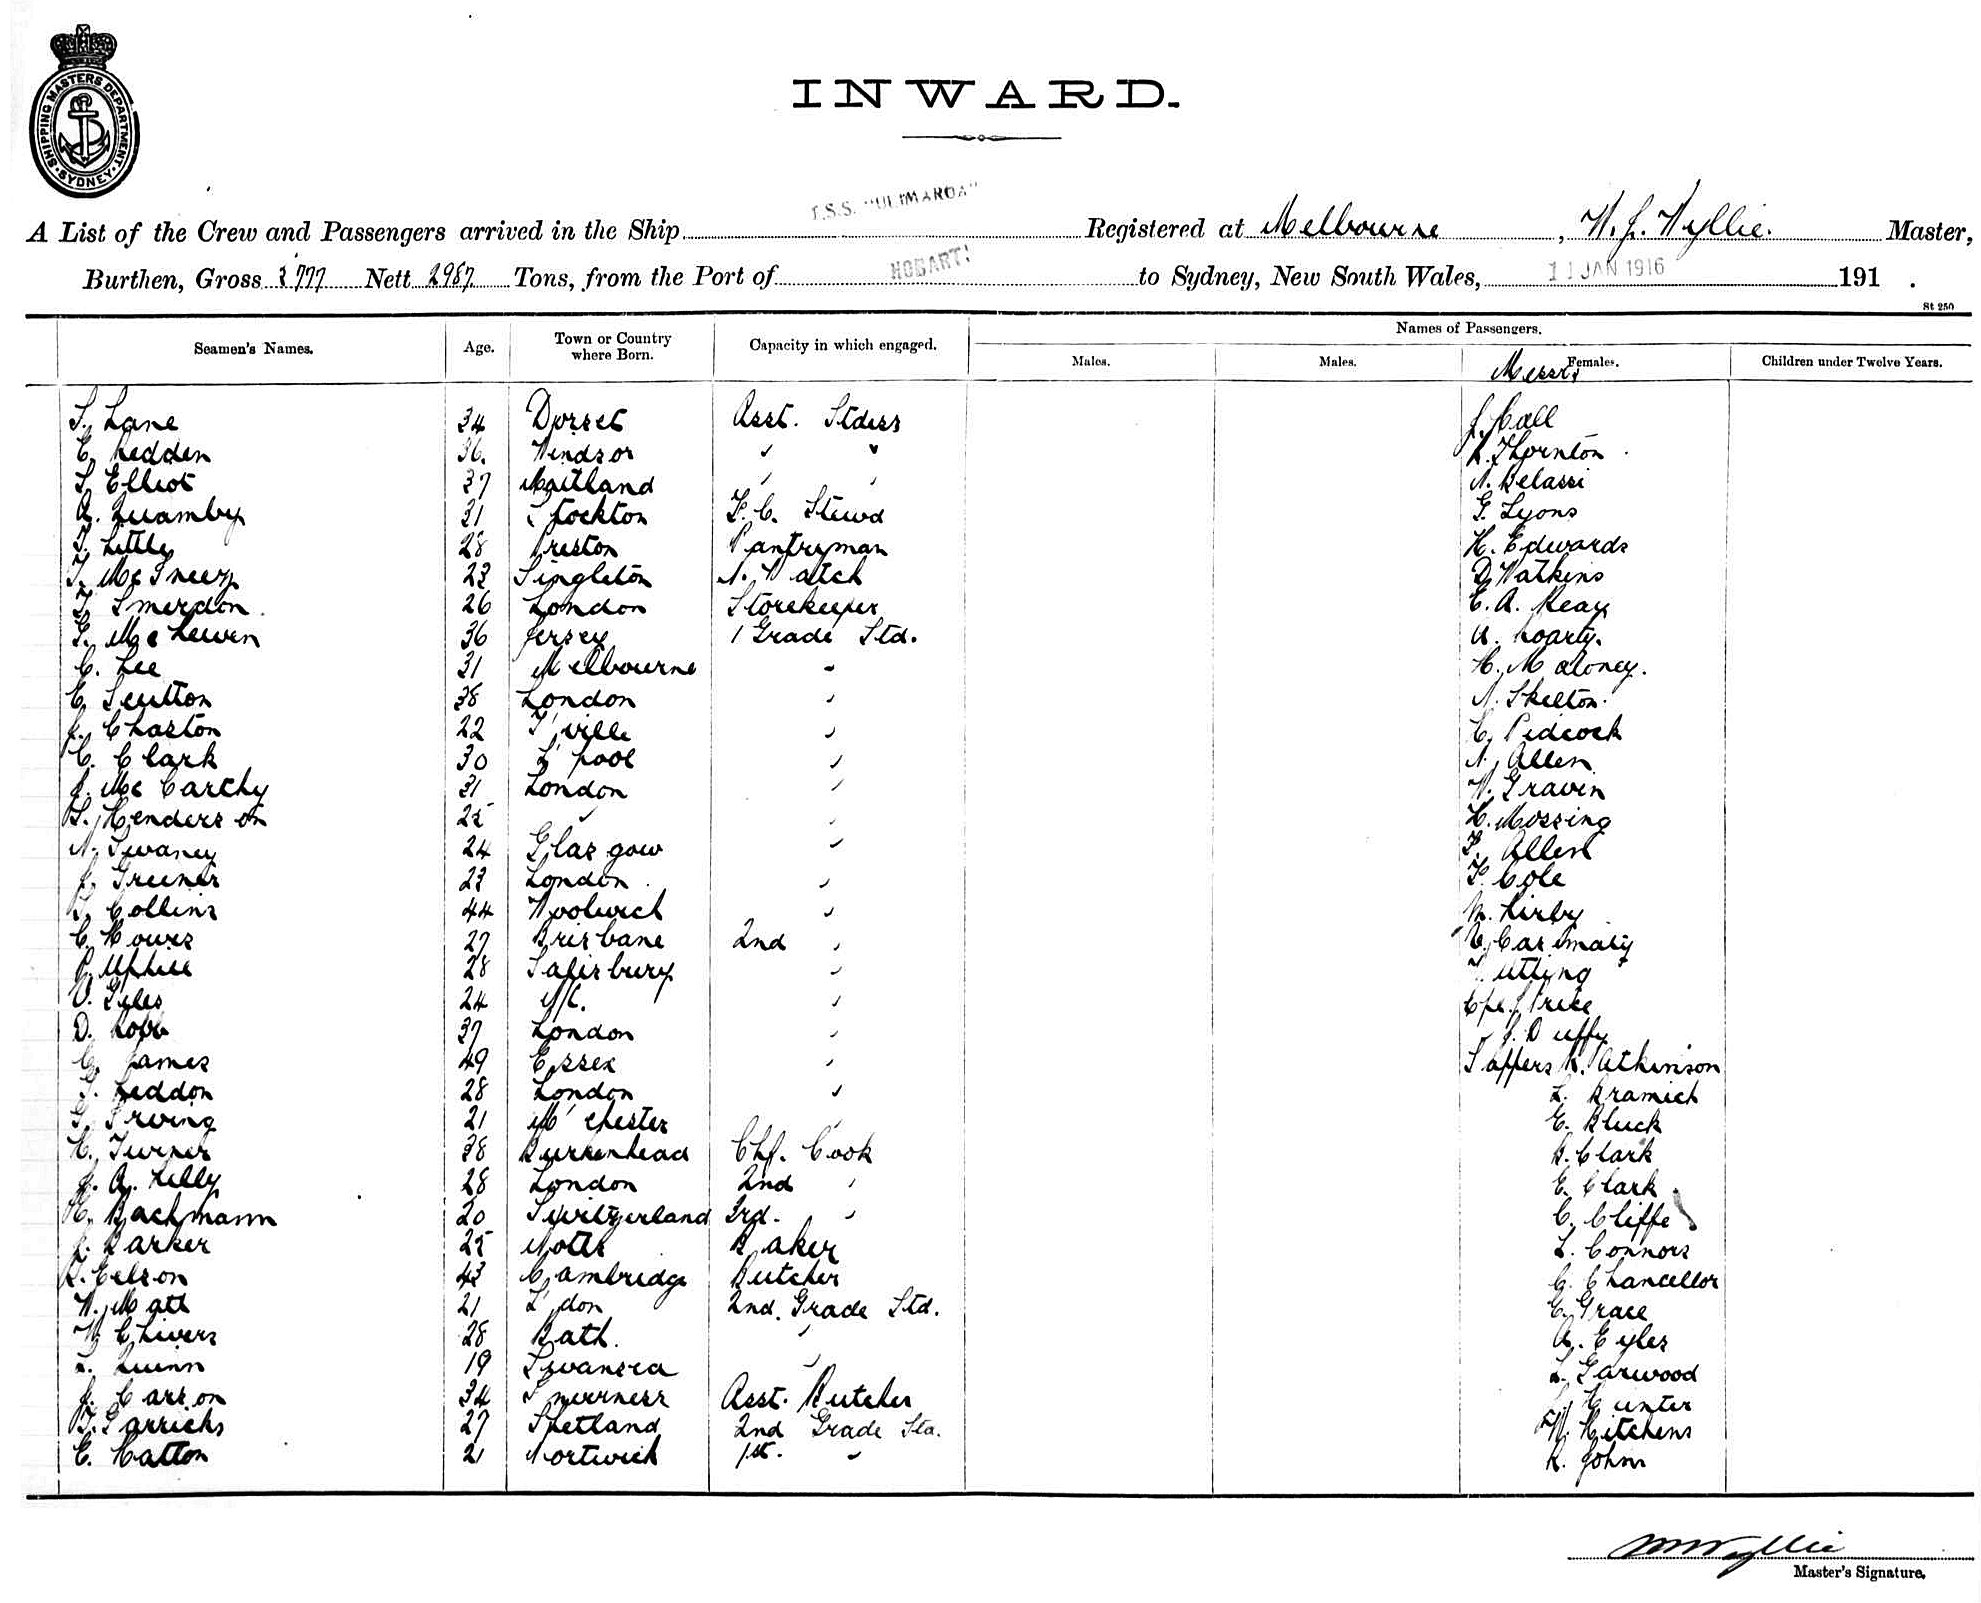 SHIPPING MASTERS DEPARTMENT
SYDNEY
INWARD.
T.S.S. "ULIMAROA"
A List of the Crew and Passengers arrived in the Ship Registered at Melbourne, W. J. Wyllie. Master,
HOBART.
Burthen, Gross 5777 Nett 2987. Tons, from the Port of to Sydney, New South Wales, 11 JAN 1916 191 .
St 250
Names of Passengers.
Seamen's Names. Age. Town or Country where Born. Capacity in which engaged. Males. Males. Females. Children under Twelve Years.
Messrs
S. Lane 34 Dorset Asst. Stdess J. Call
E. Hedden 36. Windsor " " Thornton
S. Elliot 37 Maitland " " N. Belassi
A. Quamby 31 Stockton F. C. Stewd G. Lyons
T. Little 28 Preston Pantryman H. Edwards
23 Singleton N. Watch D. Watkins
Smerdon. 26 London Storekeeper E. A. Reay
36 Jersey 1 Grade Std.
C. Lee 31 Melbourne " H. Maloney.
E. Sutton 38 London " N. Skelton.
J. Chaston 22 T'ville " C. Pidcock
C. Clark 30 L'pool " N. Allen
J. McCarthy 31 London " W. Gravin
Henderson 25 " " H. Mossing
N. Swaney 24 Glasgow " F. Allen
J. Greener 23 London " F. Cole
Collins 44 Woolwich " M. Kirby
C. Hours 27 Brisbane 2nd "
Uphill 28 Salisbury " Utting
V. Giles 24 N/C. " Price
D. Robb 37 London " J. Duffy
C. James 49 Essex " Sappers R. Atkinson
Heddon 28 London " L. Bramich
Irving 21 M'chester " E. Bluck
H. Turner 38 Birkenhead Chf. Cook B. Clark
J. A. Kelly 28 London 2nd " E. Clark
H. Bachmann 20 Switzerland 3rd. " C. Cliffe
J. Barker 25 Notts Baker L. Connors
Eelson 43 Cambridge Butcher C. Chancellor
W. Matt 21 L'don 2nd. Grade Std. E. Grace
W. Chivers 28 Bath. " A. Eyles
L. Quinn 19 Swansea " L. Garwood
J. Carson 34 Inverness Asst. Butcher Hunter
Garrichs 27 Shetland 2nd Grade Std. W. Hitchens
E. Hatton 21 Nortwich 1st. " R. Johns
Wyllie
Master's Signature.